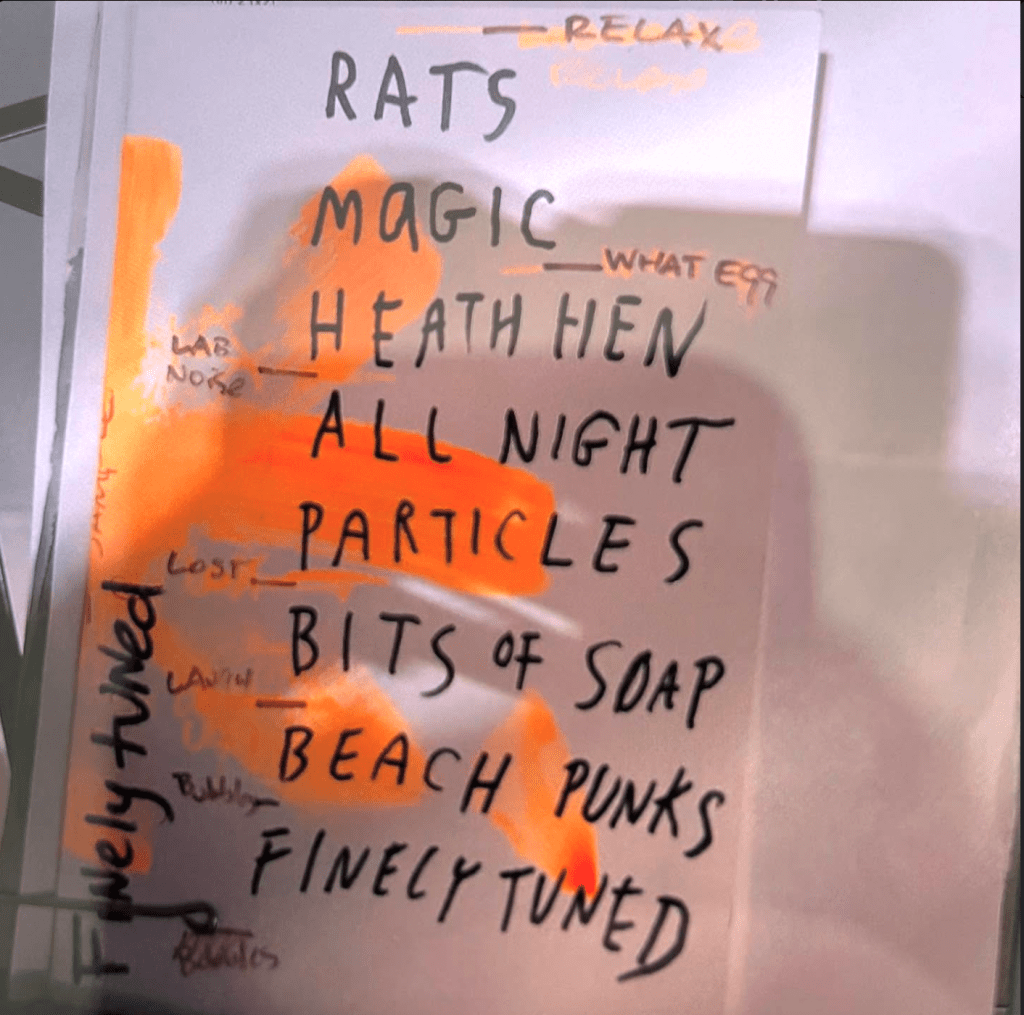 RELAX
RATS
MAGIC
WHAT EGG
HEATH HEN
LAB
NOISE
ALL NIGHT
PARTICLES
LOST
BITS OF SOAP
LAUGH
BEACH PUNKS
Bubbles
FINELY TUNED
Finely tuned